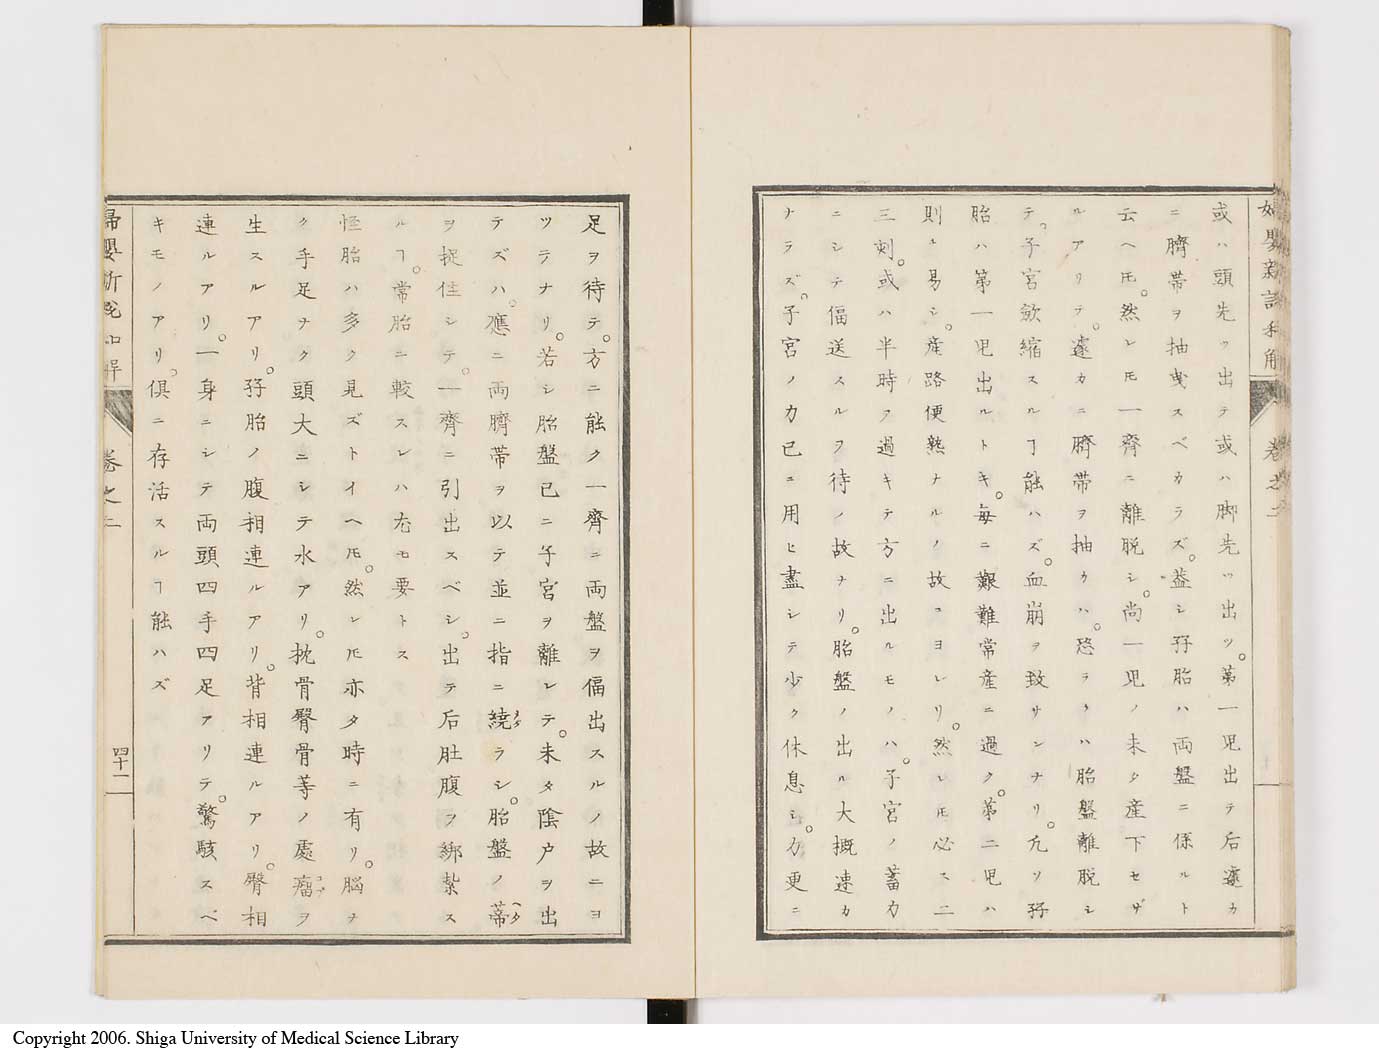 婦嬰新説和解
卷之二
或ハ頭先ッ出テ或ハ脚先ッ出ツ。第一児出テ后遽カ
ニ臍帯ヲ抽曳スベカラズ。葢シ孖胎ハ両盤ニ係ルト
云ヘ𪜈。然レ𪜈一齊ニ離脱シ。尚一児ノ未タ産下セザ
ルアリテ。遽カニ臍帯ヲ抽クハ。恐ラクハ胎盤離脱シ
テ。子宮歛縮スルヿ能ハズ。血崩ヲ致サンナリ。凢ソ孖
胎ハ第一児出ルトキ。毎ニ艱難常産ニ過ク。第二児ハ
則ュ易シ。産路便熟ナルノ故ニヨレリ。然レ𪜈必ス二
三刻。或ハ半時ヲ過キテ方ニ出ルモノハ。子宮ノ蓄力
ニシテ偪送スルヲ待ノ故ナリ。胎盤ノ出ル大概速カ
ナラズ。子宮ノ力已ニ用ヒ盡シテ少ク休息シ。力更ニ
足ヲ待テ。方ニ能ク一齊ニ両盤ヲ偪出スルノ故ニヨ
ツテナリ。若シ胎盤已ニ子宮ヲ離レテ。未タ陰户ヲ出
テズハ。應ニ両臍帯ヲ以テ並ニ指ニ繞ラシ。胎盤ノ蒂
ヲ捉住シテ。一齊ニ引出スベシ。出テ后肚腹ヲ綁紮ス
ルヿ。常胎ニ較スレハ尤モ要トス
怪胎ハ多ク見ズトイヘ𪜈。然レ𪜈亦タ時ニ有リ。脳ナ
ク手足ナク頭大ニシテ水アリ。枕骨臀骨等ノ處瘤ヲ
生スルアリ。孖胎ノ腹相連ルアリ。背相連ルアリ。臀相
連ルアリ。一身ニシテ両頭四手四足アリテ。驚駭スベ
キモノアリ。俱ニ存活スルヿ能ハズ
婦嬰新説和解
卷之二
四十二
Copyright 2006. Shiga University of Medical Science Library